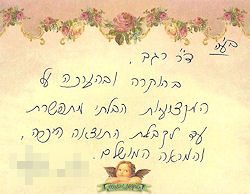 בע"ה
ד"ר רגב,
בתוקרה ובהערכה על
המקצועיות הבלתי מתפשרת
עד לקבלת התוצאה היפה
והמראה המושלם.